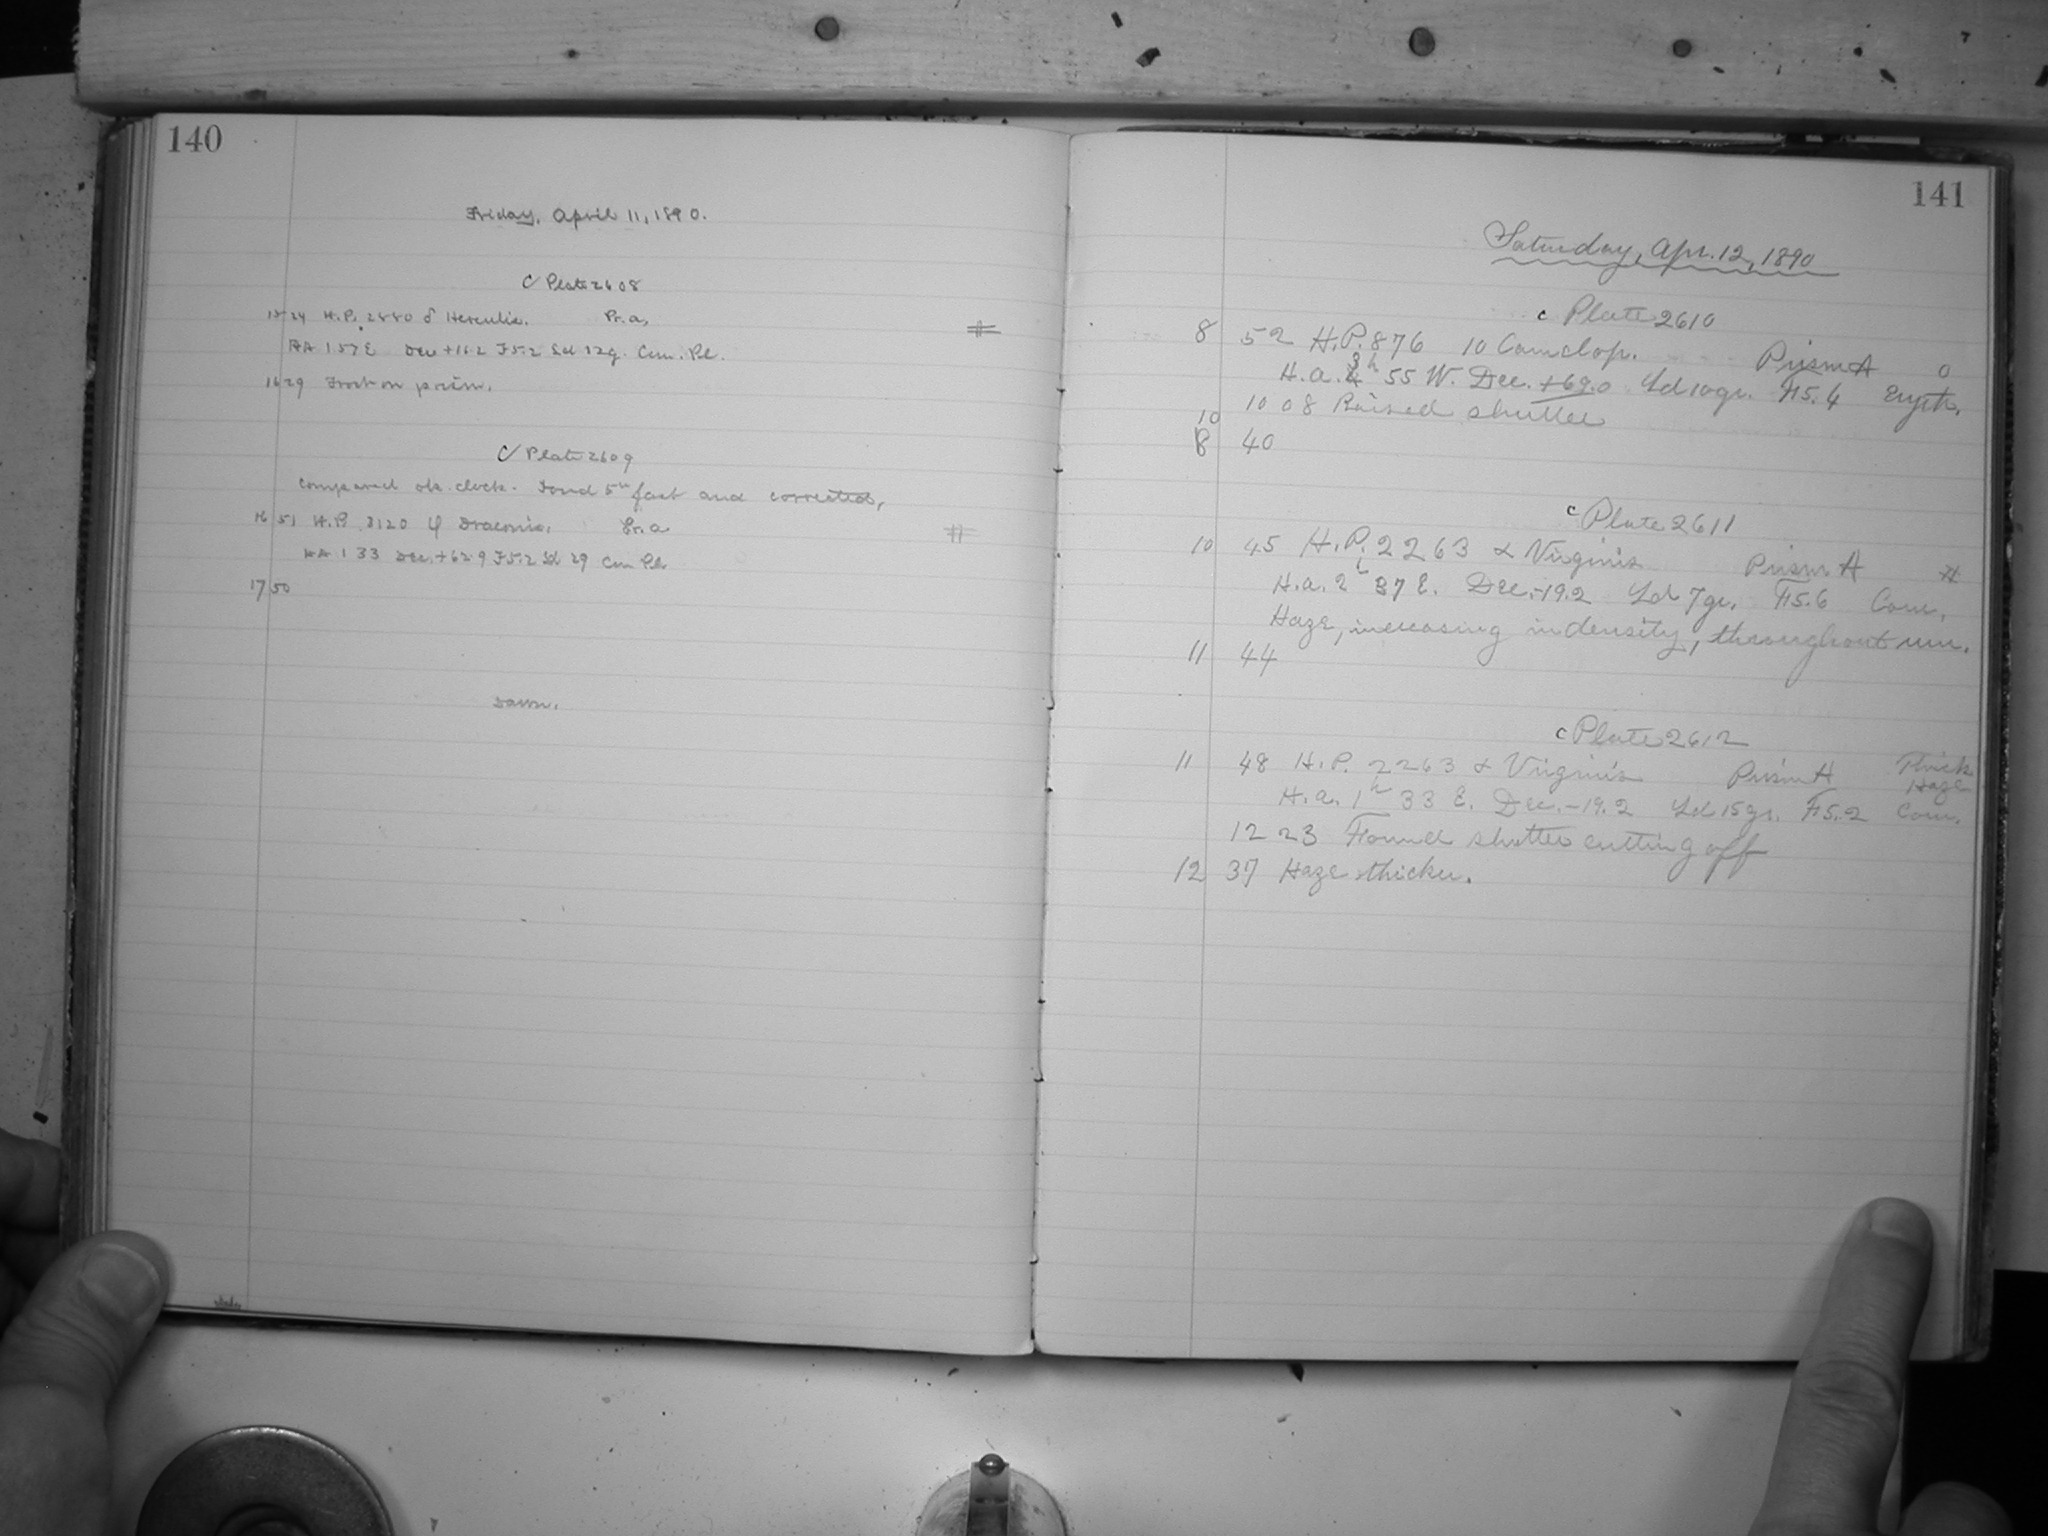 140
Friday, April 11, 1890.
C Plate 2608
15 24 H.P. 2880 δ Herculis. Pr. a,
HA 1 57 E Dec +16.2 F5.2 Ld 12g. Cum. Pl.
16 29 Frost on prism.
C Plate 2609
Compared obs. clock. Found 5m fast and corrected,
16 51 H.P. 3120 φ Draconis. Pr. a
HA 1 33 Dec. +62.9 F5.2 Ld 29 Cum Pl
17 50
Dawn.
141
Saturday, Apr. 12, 1890
c Plate 2610
8 52 H.P. 876 10 Camelop. Prism A 0
H.a. 3h 55 W. Dec. +69.0 Ld 10gr. F5.4 Eryth.
10 08 Raised shutter
10 40
c Plate 2611
10 45 H.P. 2263 α Virginis Prism A #
H.a. 2h 37 E. Dec. -19.2 Ld 7gr. F5.6 Cum.
Haze, increasing in density, throughout run.
11 44
c Plate 2612
11 48 H.P. 2263 α Virginis Prism A Thick Haze
H.a. 1h 33 E. Dec. -19.2 Ld 15gr. F5.2 Cum.
12 23 Found shutter cutting off
12 37 Haze thicker.